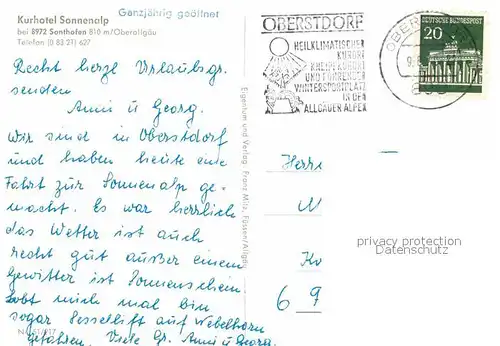 Kurhotel Sonnenalp
bei 8972 Sonthofen 810 m/Oberallgäu
Telefon (0 83 21) 627
Ganzjährig geöffnet
Recht herzl Urlaubsgr.
senden
Anni u Georg.
Wir sind in Oberstdorf
und haben heute eine
Fahrt zur Sonnenalp ge-
macht. Es war herrlich
das Wetter ist auch
recht gut außer einem
Gewitter ist Sonnenschein
mich mal bin
sogar Sessellift auf Nebelhorn
gefahren. Viele Gr. Anni u Georg
Eigentum und Verlag: Franz Milz, Füssen/Allgäu
OBERSTDORF
HEILKLIMATISCHER
KURORT
UND FÜHRENDER
WINTERSPORTPLATZ
IN DEN
ALLGÄUER ALPEN
DEUTSCHE BUNDESPOST
20
Herrn
privacy protection
Datenschutz
6 9